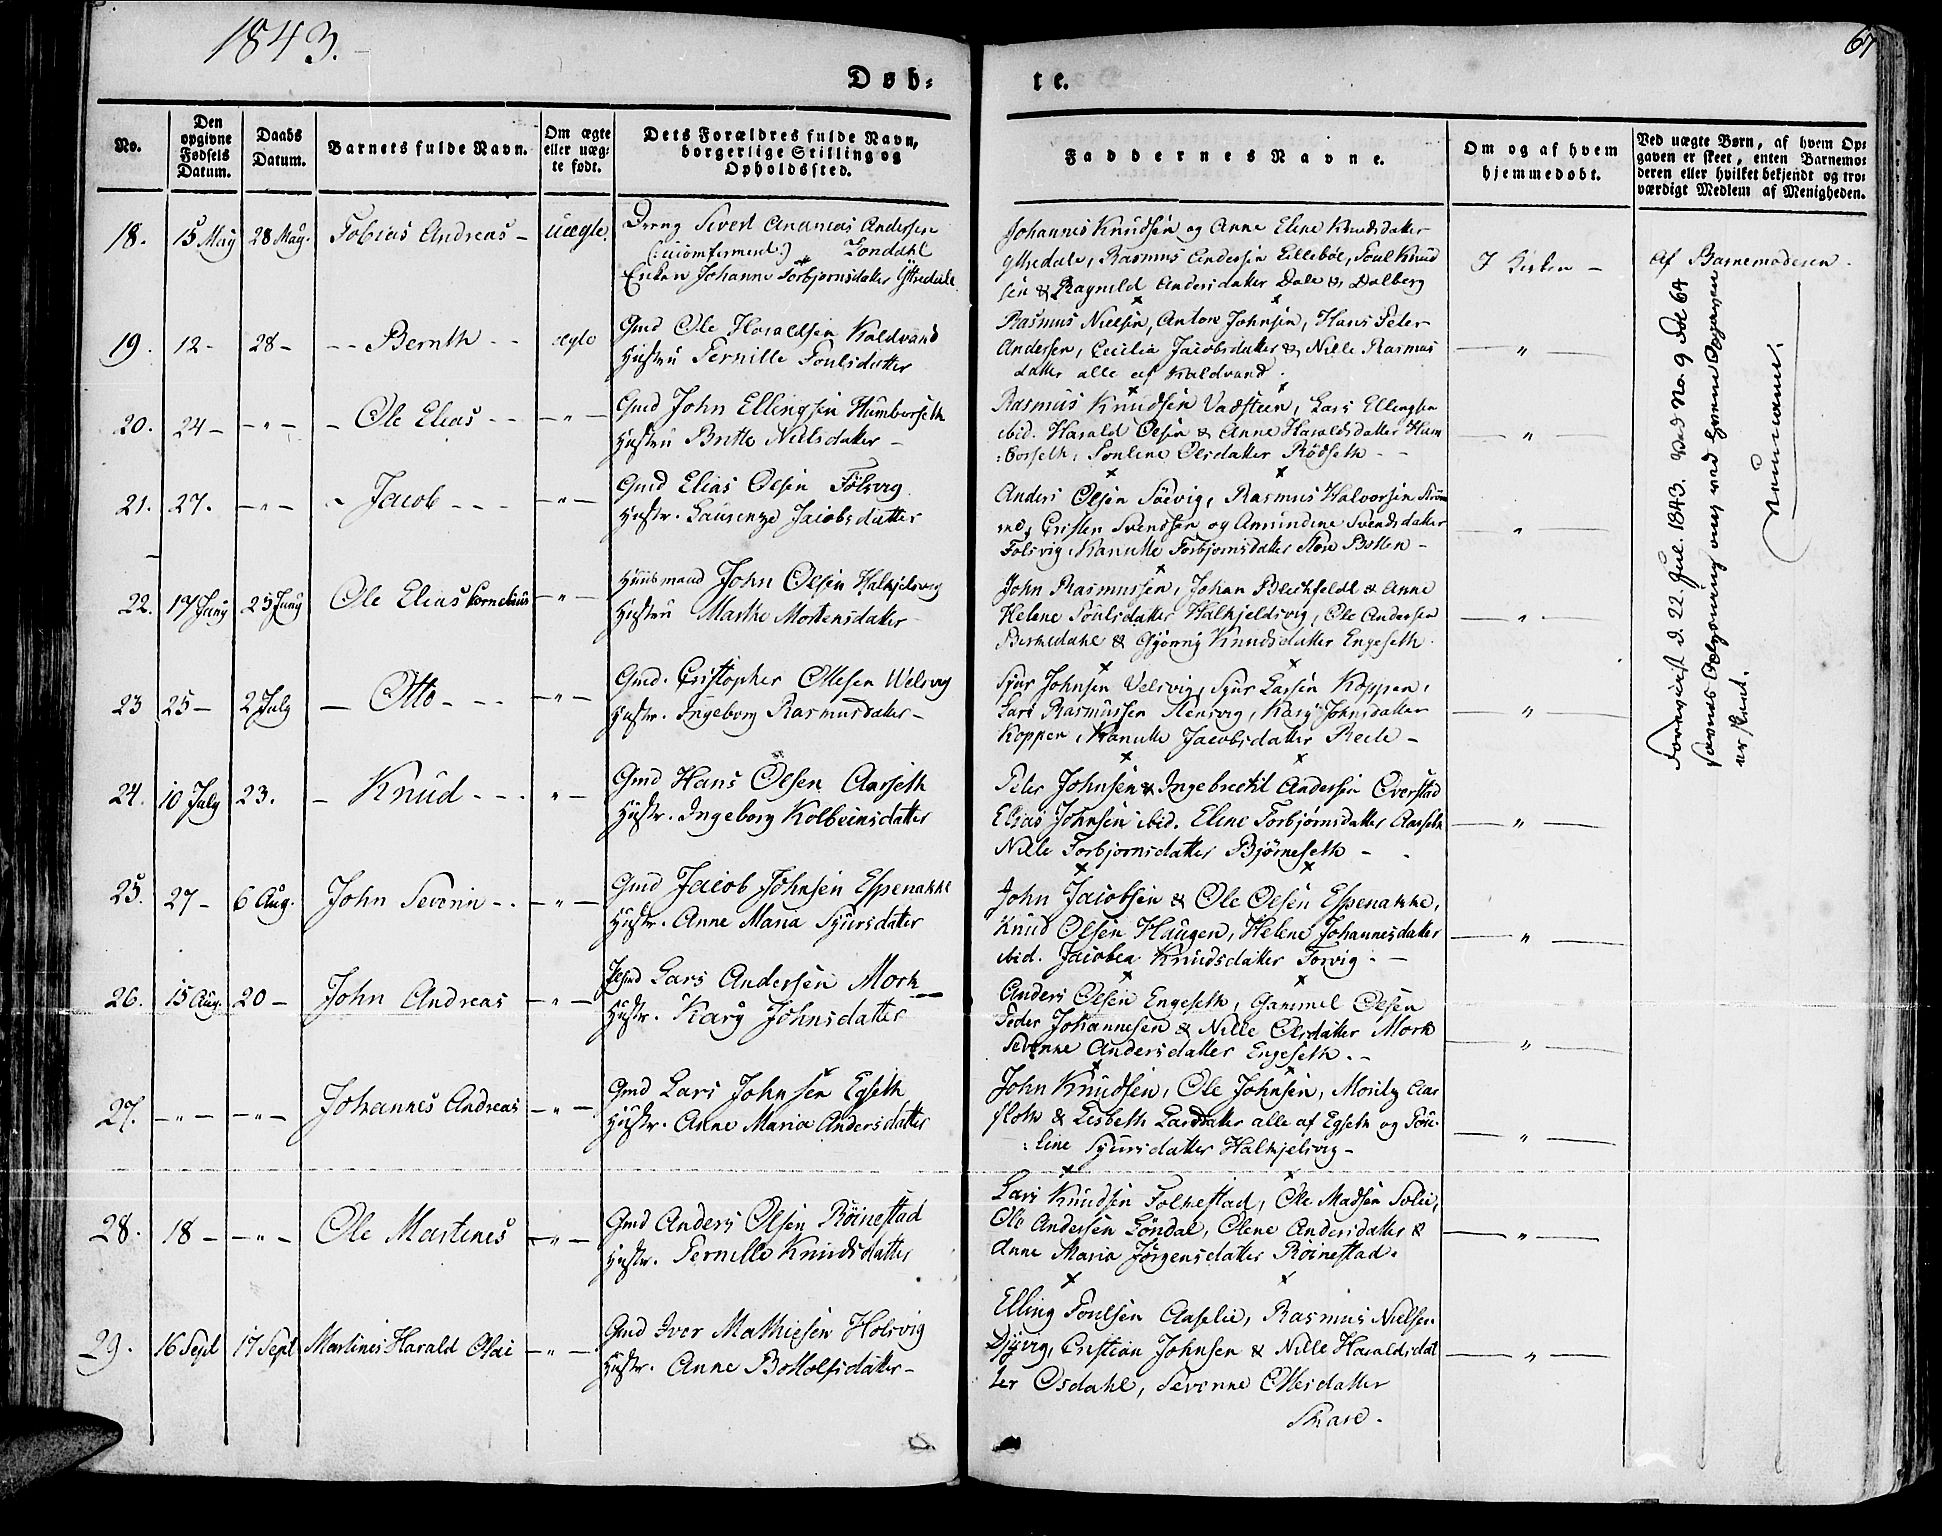 1843.
67
Døb-
te.
No.
Den opgivne Fødsels Datum.
Daabs Datum.
Barnets fulde Navn.
Om ægte eller uæg-te født.
Dets Forældres fulde Navn, borgerlige Stilling og Opholdssted.
Faddernes Navne.
Om og af hvem hjemmedøbt.
Ved uægte Børn, af hvem Op-gaven er skeet, enten Barnemo-deren eller hvilket bekjendt og tro-værdigt Medlem af Menigheden.
18. 15 May 28 May. Tobias Andreas - Uægte.
Dreng Sivert Ananias Andersen
(:uiomfirment:) Londahl
Enken Johanne Torbjornsdatter Yttredale
Johannes Knudsen og Anne Eline Knudsdatter
Yttredale, Rasmus Andersen Lillebøe, Poul Knud
sen & Ragnild Andersdatter Dale & Dalberg
I Kirken -
Af Barnemoderen.
19. 12 - 28 - -- Bernth -- ægte
Gmd Ole Haraldsen Kaldvand
Hustru Pernille Poulsdatter
Rasmus Nielsen, Anton Johnsen, Hans Peter
Andersen, Cecilia Jacobsdatter & Nille Rasmus
datter alle af Kaldvand.
— " —
20. 24 - - " - - Ole Elias -- - " -
Gmd John Ellingsen Humborseth
Hustru Britte Nielsdatter -
Rasmus Knudsen Vadsteen, Lars Ellingsen
ibid. Harald Olsen & Anne Haraldsdatter Hum
:borseth, Pouline Olsdatter Rödseth --
— " —
21. 27. - " - - Jacob --- - " -
Gmd Elias Olsen Folsvig
Hustr. Laurenze Jacobsdatter
Anders Olsen Söevig, Rasmus Halvorsen Strøm
me, Cristen Svendsen og Amundine Svendsdatter
Folsvig, Kanutte Torbjornsdatter Store Botten -
— " —
22. 17 Juny 25 Juny Ole Elias Cornelius - " -
Huusmand John Olsen Halkjelsvig
Hustru Marthe Mortensdatter -
John Rasmussen, Johan Blechfeldt & Anne
Helene Poulsdatter Halkjeldsvig, Ole Andersen
Birkedahl & Gjørrig Knudsdatter Engeseth.
— " —
23 25 - 2 July - Otto --- - " -
Gmd. Cristopher Ottesen Velsvig
Hustr. Ingeborg Rasmusdatter -
Sjur Johnsen Velsvig, Sjur Larsen Koppen,
Lars Rasmussen Steensvig, Kary Johnsdatter
Koppen, Kanutte Jacobsdatter Reite -
— " —
24. 10 July 23. - Knud --- - " -
Gmd Hans Olsen Aarseth
Hustr. Ingeborg Kolbeinsdatter
Peter Johnsen & Ingebrectil Andersen Overstad
Elias Johnsen ibid. Eline Torbjørnsdatter Aarseth
Nille Torbjornsdatter Bjørneseth -
— " —
25. 27 - 6 Aug. John Severin -- - " -
Gmd Jacob Johnsen Espenakke
Hustr. Anne Maria Sjursdatter
John Jacobsen & Ole Olsen Espenakke,
Knud Olsen Haugen, Helene Johannesdatter
ibid. Jacobea Knudsdatter Torvig --
— " —
26. 15 Aug. 20 - John Andreas - " -
Gmd Lars Andersen Mork
Hustr. Kary Johnsdatter
Anders Olsen Engeseth, Gammel Olsen
Peder Johannesen & Nille Olsdatter Mork
Sevrine Andersdatter Engeseth. -
— " —
27. - " - - " - Johannes Andreas - " -
Gmd Lars Johnsen Egseth
Hustr. Anne Maria Andersdatter
John Knudsen, Ole Johnsen, Moritz Aar
floth & Lisbeth Larsdatter alle af Egseth og Pou-
:line Sjursdatter Halkjelsvig -
— " —
28. 18 - - " - Ole Martinus - " -
Gmd Anders Olsen Röinestad
Hustr. Pernille Knudsdatter
Lars Knudsen Folkestad, Ole Madsen Solie,
Ole Andersen Löndal, Olene Andersdatter &
Anne Maria Jørgensdatter Röinestad.
— " —
29. 16 Sept 17 Sept Martines Harald Olai - " -
Gmd Iver Mathiesen Holsvig
Hustr. Anne Bottolfsdatter -
Elling Poulsen Aaselie, Rasmus Nielsen
Djyvig, Cristian Johnsen & Nille Haraldsdat
ter Osdahl, Sevrine Ottesdatter
Skare.
— " —
Foreviist d. 22. Jul. 1843. Ved No. 9 Pol 64
savnes Oplysning om ved hvem Opgaven
er skeet.
Neumann.